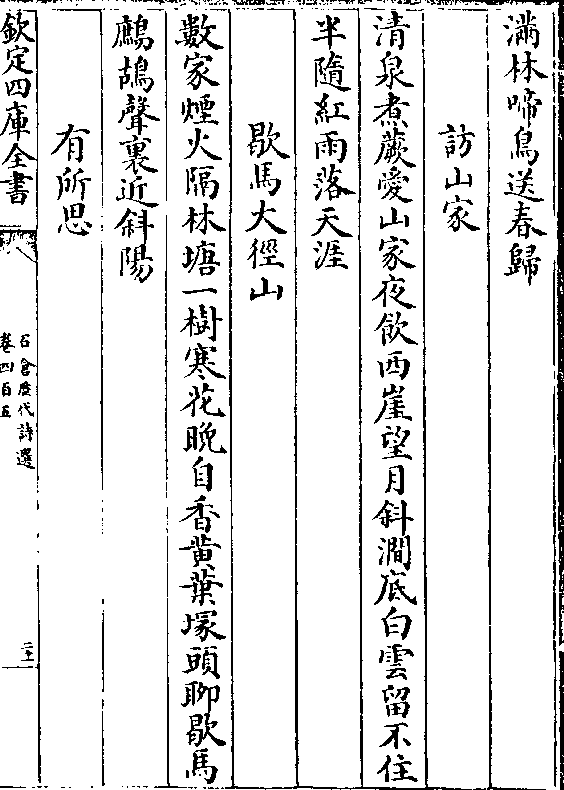 滿林啼鳥送春歸
訪山家
清泉煮蕨愛山家夜飲西崖望月斜澗底白雲留不住
半隨紅雨落天涯
歇馬大徑山
數家煙火隔林塘一樹寒花晚自香黃葉塚頭聊歇馬
鷓鴣聲裏近斜陽
有所思
欽定四庫全書
石倉歷代詩選
卷四百五